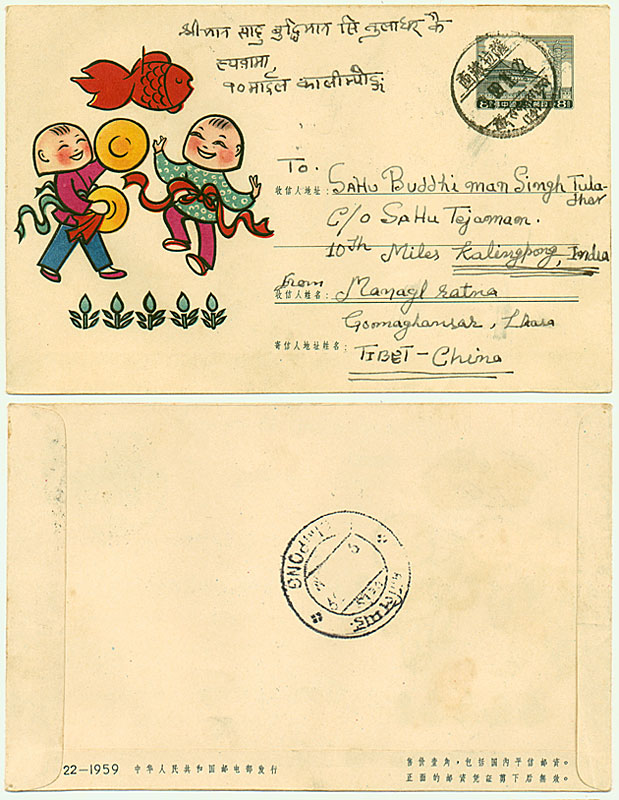 श्रीमान साहु बुद्धिमान सिं तुलाधर कै
१० माईल कालीम्पोङ
8 中国人民邮政 8
西藏拉萨
To.
收信人地址：
Sahu Buddhi man Singh Tuladhar
C/o Sahu Tejaman.
10th Miles Kalingpong, India
From
收信人姓名：
Managl ratna
Goomaghansar, Lhasa
寄信人地址姓名：
TIBET-China
KALIMPONG
22—1959 中华人民共和国邮电部发行
售价壹角，包括国内平信邮资。
正面的邮资凭证剪下后无效。